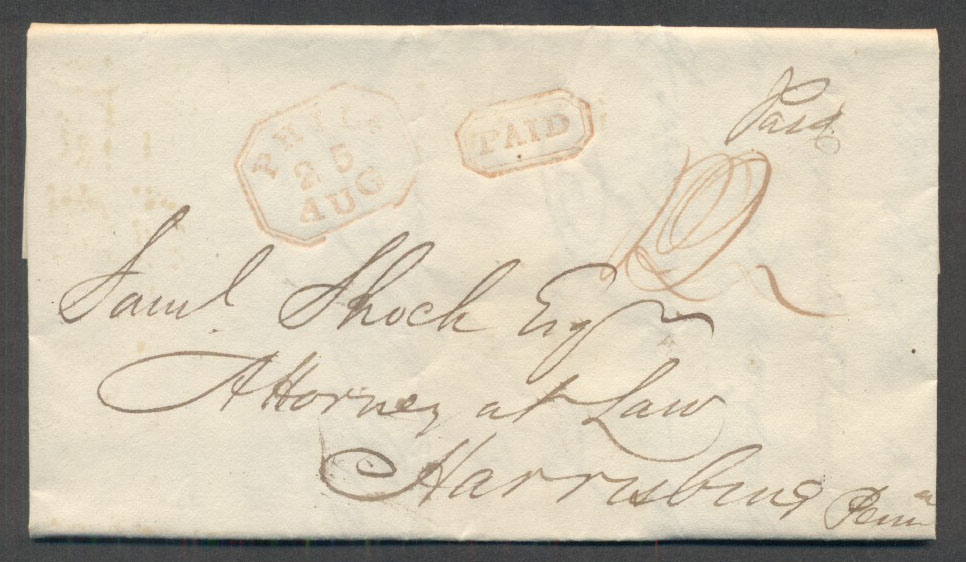 PHILA
25
AUG
PAID
Paid
Saml. Shoch Esqr
Attorney at Law
Harrisburg Penna